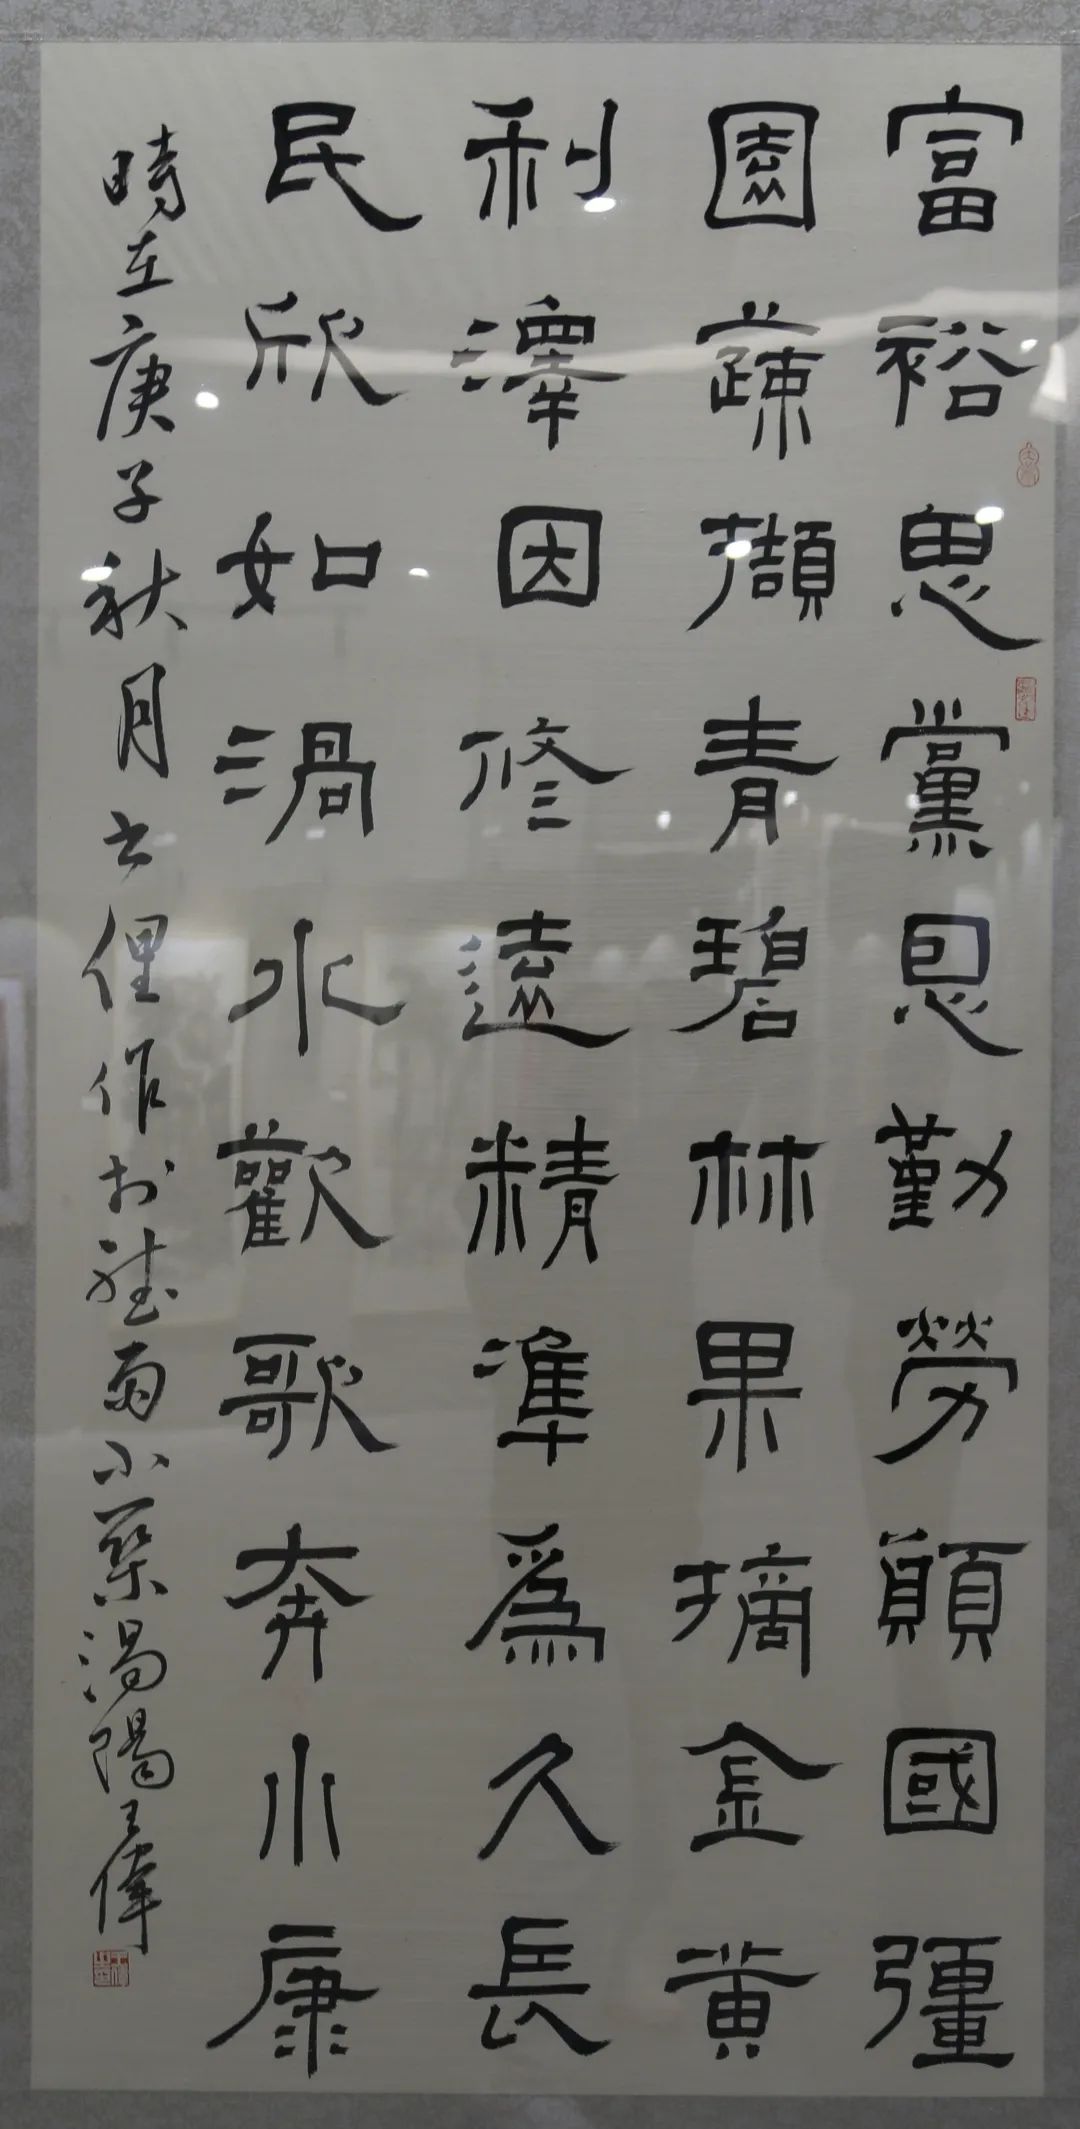 富裕思黨恩勤勞願國彊
園蔬擷青碧林果摘金黄
利澤因修遠精準爲久長
民欣如渦水歡歌奔小康
時在庚子秋月古俚作於聽雨小築渦陽王偉